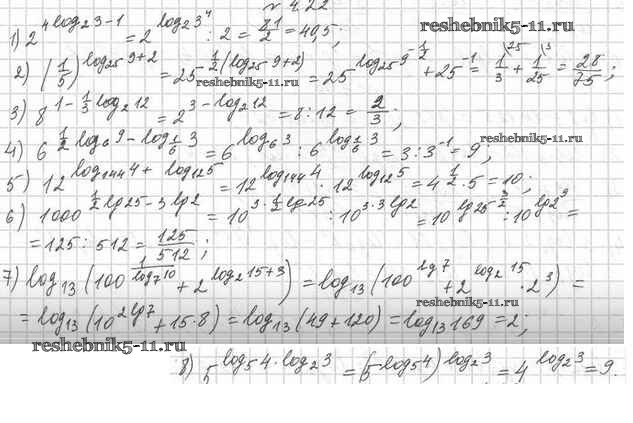 N 4.22
1) 2^(4log₂3-1) = 2^(log₂3⁴) : 2 = 81/2 = 40,5; reshebnik5-11.ru
2) (1/5)^(log₂₅9+2) = 25^(-1/2(log₂₅9+2)) = 25^(log₂₅9^(-1/2)) + 25^(-1) = 1/3 + 1/25 = 28/75;
reshebnik5-11.ru
3) 8^(1-1/3log₂12) = 2^(3-log₂12) = 8 : 12 = 2/3;
reshebnik5-11.ru
4) 6^(1/2log₆9-log_(1/6)3) = 6^(log₆3) : 6^(log_(1/6)3) = 3 : 3^(-1) = 9;
5) 12^(log₁₄₄4+log₁₂5) = 12^(log₁₄₄4) · 12^(log₁₂5) = 4^(1/2) · 5 = 10;
6) 1000^(1/2lg25-3lg2) = 10^(3·1/2lg25) : 10^(3·3lg2) = 10^(lg25^(3/2)) : 10^(lg2⁹) =
= 125 : 512 = 125/512;
7) log₁₃(100^(1/log₇10) + 2^(log₂15+3)) = log₁₃(100^(lg7) + 2^(log₂15) · 2³) =
reshebnik5-11.ru
= log₁₃(10^(2lg7) + 15·8) = log₁₃(49+120) = log₁₃169 = 2;
reshebnik5-11.ru
8) 5^(log₅4·log₂3) = (5^(log₅4))^(log₂3) = 4^(log₂3) = 9.